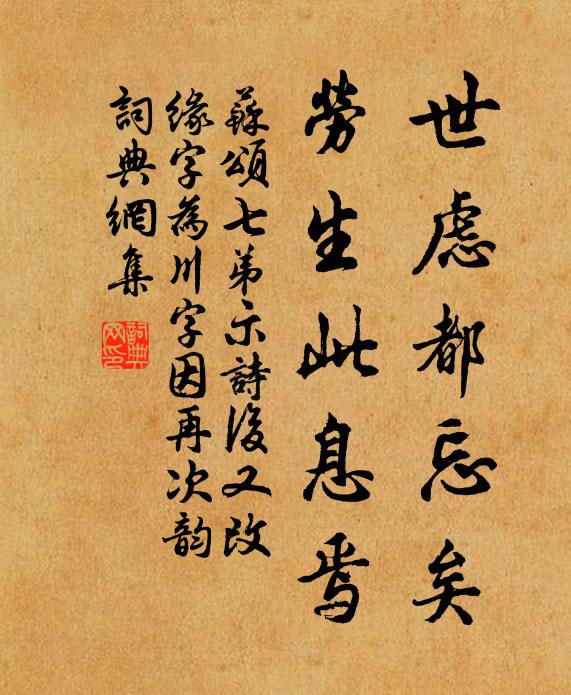 世慮都忘矣
勞生此息焉
蘇頌七弟示詩後又改
緣字為川字因再次韵
詞典網集
詞典网印